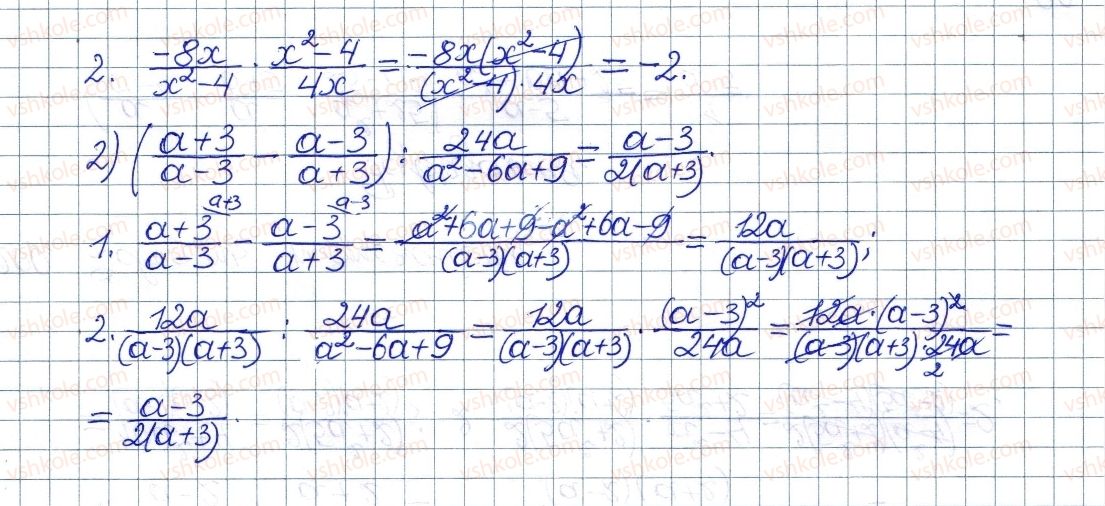 2. \frac{-8x}{x^2-4} \cdot \frac{x^2-4}{4x} = \frac{-8x(x^2-4)}{(x^2-4) \cdot 4x} = -2.
2) \left(\frac{a+3}{a-3} - \frac{a-3}{a+3}\right) : \frac{24a}{a^2-6a+9} = \frac{a-3}{2(a+3)}.
1. \frac{a+3}{a-3}^{a+3} - \frac{a-3}{a+3}^{a-3} = \frac{a^2+6a+9-a^2+6a-9}{(a-3)(a+3)} = \frac{12a}{(a-3)(a+3)};
2. \frac{12a}{(a-3)(a+3)} : \frac{24a}{a^2-6a+9} = \frac{12a}{(a-3)(a+3)} \cdot \frac{(a-3)^2}{24a} = \frac{12a \cdot (a-3)^2}{(a-3)(a+3) \cdot 24a_2} =
= \frac{a-3}{2(a+3)}.